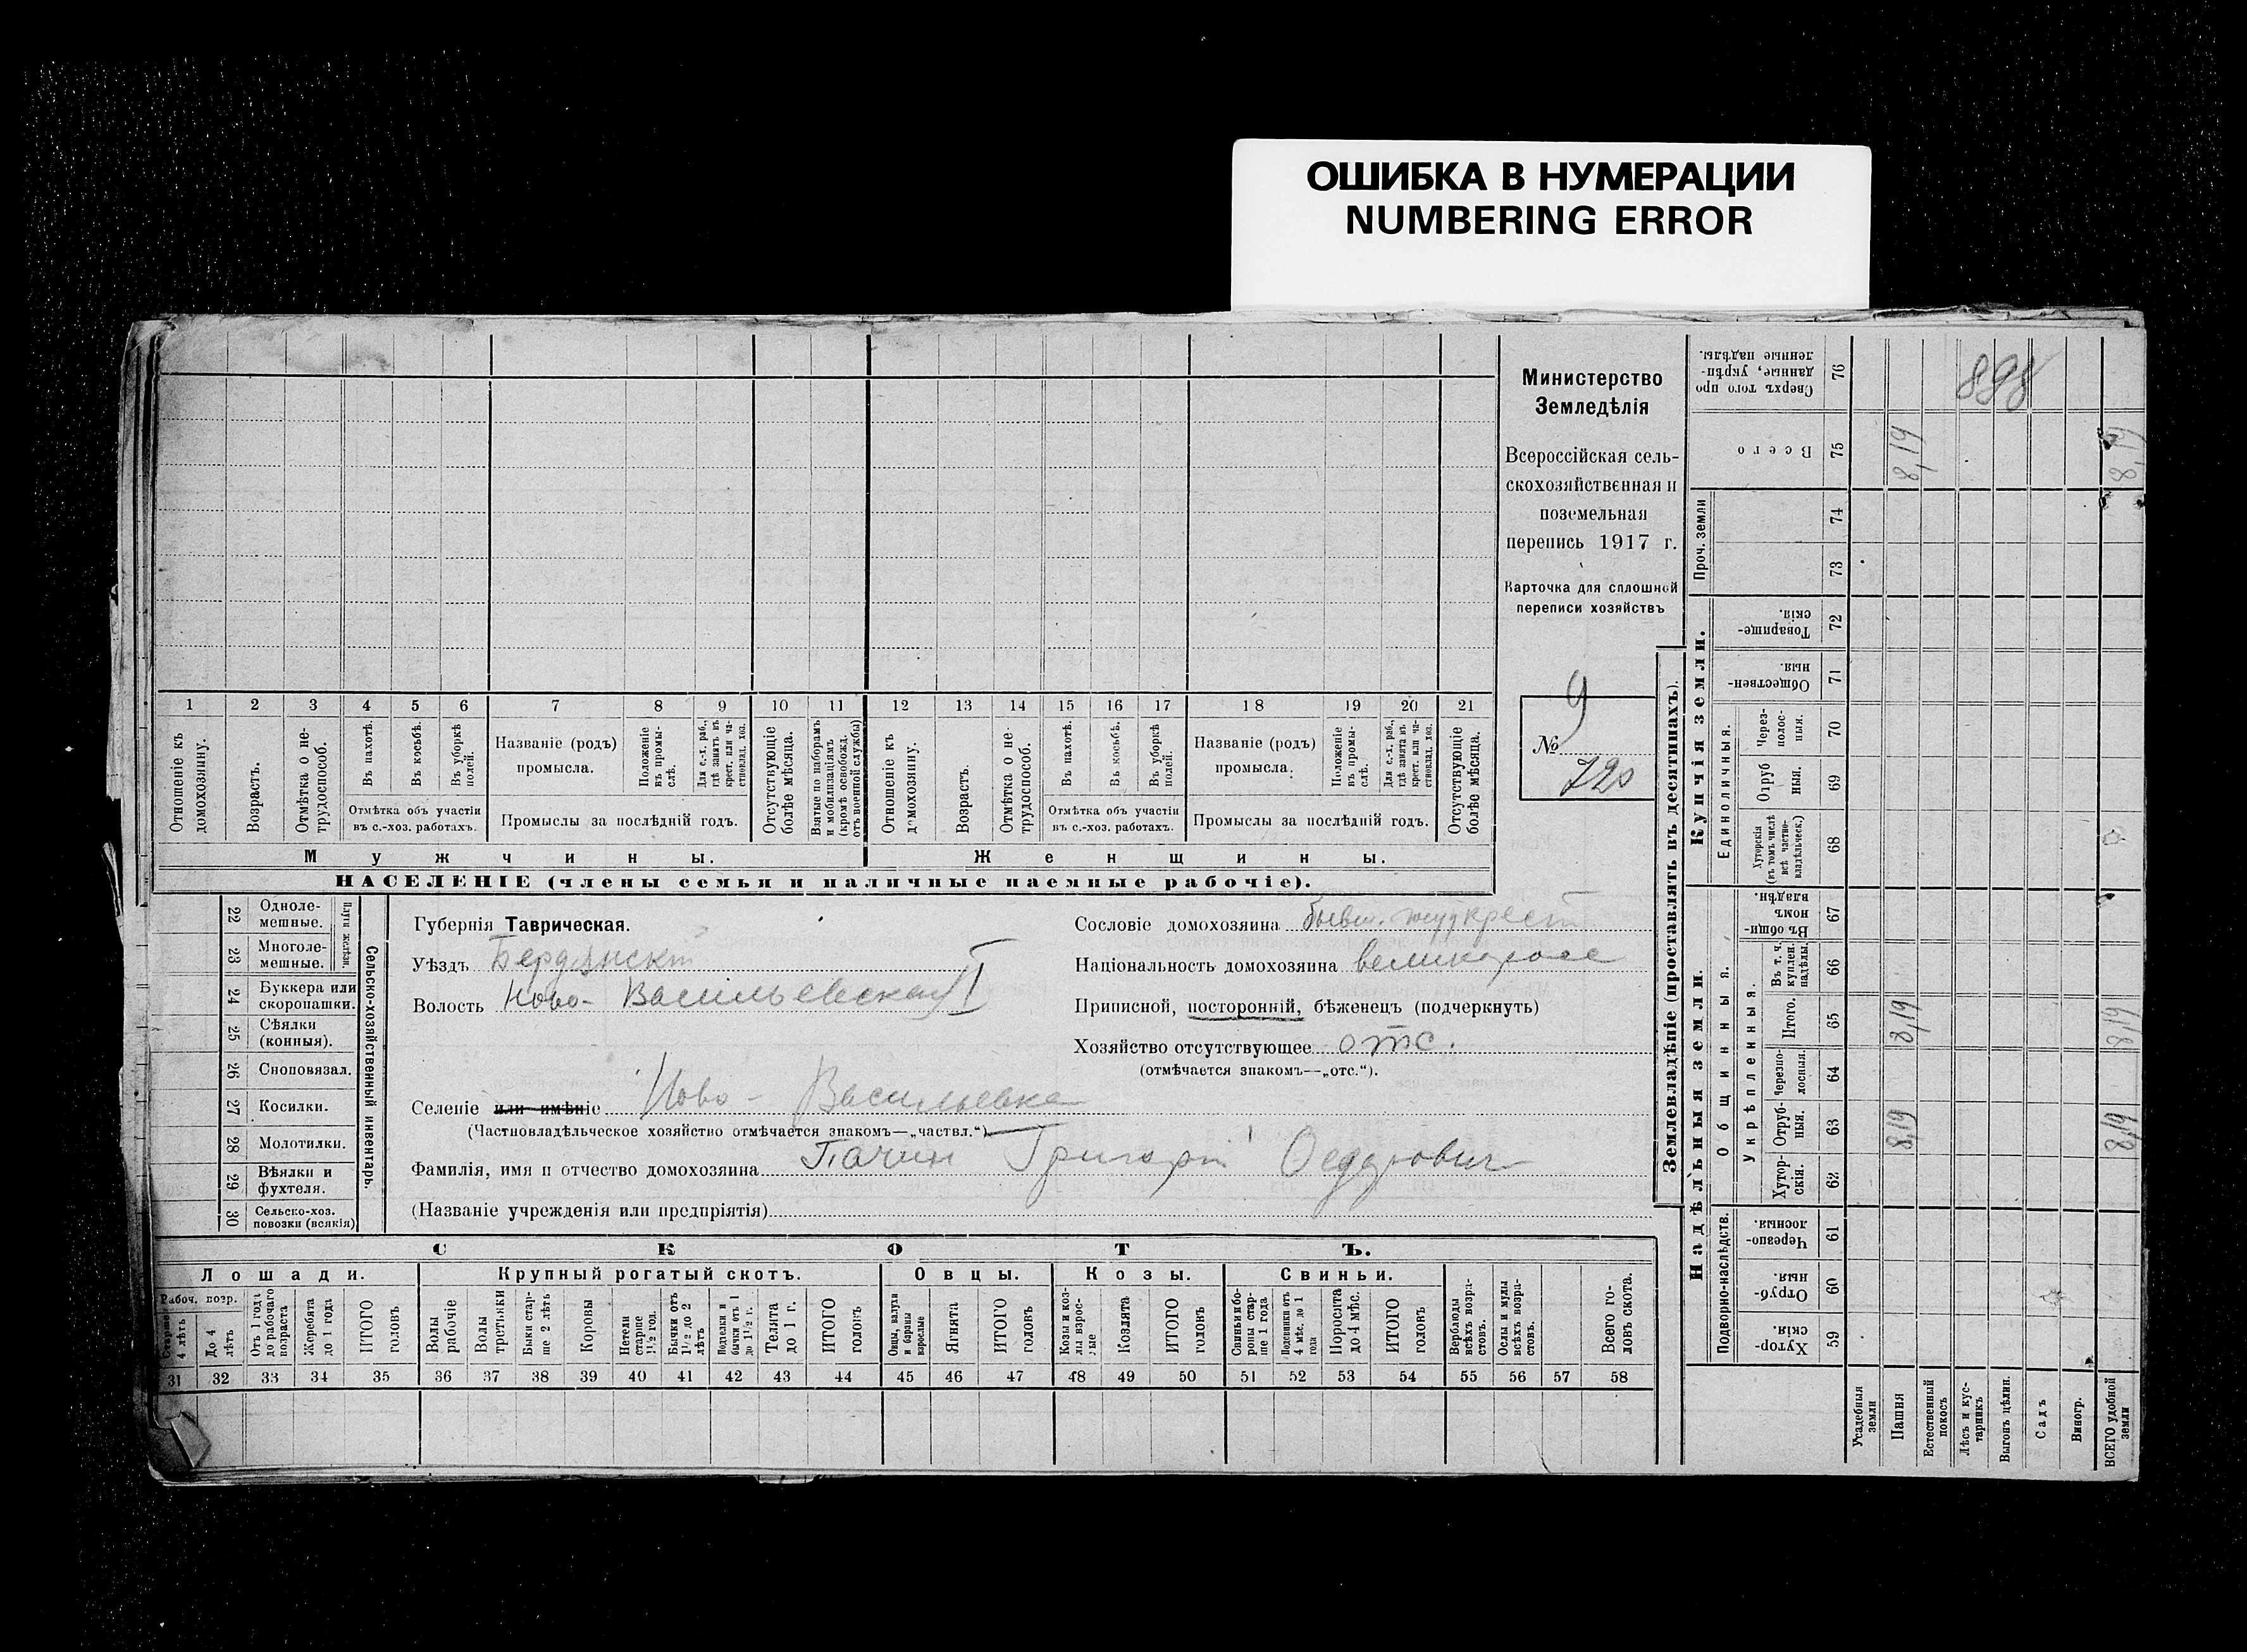 ОШИБКА В НУМЕРАЦИИ
NUMBERING ERROR
898
Министерство
Земледѣлія
Всероссійская сель-
скохозяйственная и
поземельная
перепись 1917 г.
Карточка для сплошной
переписи хозяйствъ
9
№
720
1 2 3 4 5 6 7 8 9 10 11 12 13 14 15 16 17 18 19 20 21
Отношеніе къ домохозяину.
Возрастъ.
Отмѣтка о не-трудоспособ.
Въ пахотѣ.
Въ косьбѣ.
Въ уборкѣ полей.
Названіе (родъ) промысла.
Положеніе въ промы-слѣ.
Для с.-х. раб., гдѣ занятъ въ крест. или ча-стновлад. хоз.
Отсутствующіе болѣе мѣсяца.
Взятые по наборамъ и мобилизаціямъ (кромѣ освобожд. отъ военной службы)
Отношеніе къ домохозяину.
Возрастъ.
Отмѣтка о не-трудоспособ.
Въ пахотѣ.
Въ косьбѣ.
Въ уборкѣ полей.
Названіе (родъ) промысла.
Положеніе въ промы-слѣ.
Для с.-х. раб., гдѣ занята въ крест. или ча-стновлад. хоз.
Отсутствующіе болѣе мѣсяца.
Отмѣтка объ участіи въ с.-хоз. работахъ.
Промыслы за послѣдній годъ.
Отмѣтка объ участіи въ с.-хоз. работахъ.
Промыслы за послѣдній годъ.
Мужчины.
Женщины.
НАСЕЛЕНІЕ (члены семьи и наличные наемные рабочіе).
22 Одноле-мешные.
23 Многоле-мешные.
Плуги желѣзн.
24 Буккера или скоропашки.
25 Сѣялки (конныя).
26 Сноповязал.
27 Косилки.
28 Молотилки.
29 Вѣялки и фухтеля.
30 Сельско-хоз. повозки (всякія)
Сельско-хозяйственный инвентарь.
Губернія Таврическая.
Уѣздъ Бердянскій
Волость Ново-Васильевская I
Сословіе домохозяина бывш.
Національность домохозяина великоросс
Приписной, посторонній, бѣженец (подчеркнуть)
Хозяйство отсутствующее отс.
(отмѣчается знакомъ—„отс.“).
Селеніе или имѣніе Ново-Васильевка
(Частновладѣльческое хозяйство отмѣчается знакомъ—„частвл.“)
Фамилія, имя и отчество домохозяина Пачин Григорій Федорович
(Названіе учрежденія или предпріятія)
СКОТЪ.
Лошади. Крупный рогатый скотъ. Овцы. Козы. Свиньи.
Рабоч. возр.
Старше 4 лѣтъ
До 4 лѣтъ
Отъ 1 года до рабочаго возраста
Жеребята до 1 года
ИТОГО головъ
Волы рабочіе
Волы третьяки
Быки стар-ше 2 лѣтъ
Коровы
Нетели старше 1½ год.
Бычки отъ 1½ до 2 лѣтъ
Подтелки и бычки отъ 1 до 1½ г.
Телята до 1 г.
ИТОГО головъ
Овцы, валухи и бараны взрослые
Ягнята
ИТОГО головъ
Козы и коз-лы взрос-лые
Козлята
ИТОГО головъ
Свиньи и бо-ровы стар-ше 1 года
Подсвинки отъ 4 мѣс. до 1 года
Поросята до 4 мѣс.
ИТОГО головъ
Верблюды всѣхъ возра-стовъ.
Ослы и мулы всѣхъ возра-стовъ.
Всего го-ловъ скота.
31 32 33 34 35 36 37 38 39 40 41 42 43 44 45 46 47 48 49 50 51 52 53 54 55 56 57 58
Землевладѣніе (проставлять въ десятинахъ).
Надѣльныя земли.
Купчія земли.
Проч. земли
Подворно-наслѣдств.
Общинныя.
Укрѣпленныя.
Единоличныя.
Сверхъ того про данные, укрѣп-ленные надѣлы. 76
Всего 75 8,19 8,19
74
73
Товарище-скія. 72
Обществен-ныя. 71
Через-полос-ныя. 70
Отруб ныя. 69
Хуторскія (въ томъ числѣ всѣ частно-владѣльческ.) 68
Въ общи-номъ владѣн. 67
Въ т. ч. куплен. надѣлы. 66
Итого. 65 8,19 8,19
Черезпо-лосныя. 64
Отруб-ныя. 63 8,19 8,19
Хутор-скія. 62
Черезпо-лосныя 61
Отруб-ныя. 60
Хутор-скія. 59
Усадебныя земли
Пашня
Естественный покосъ
Лѣсъ и кус-тарникъ
Выгонъ цѣлин.
Садъ
Виногр.
ВСЕГО удобной земли